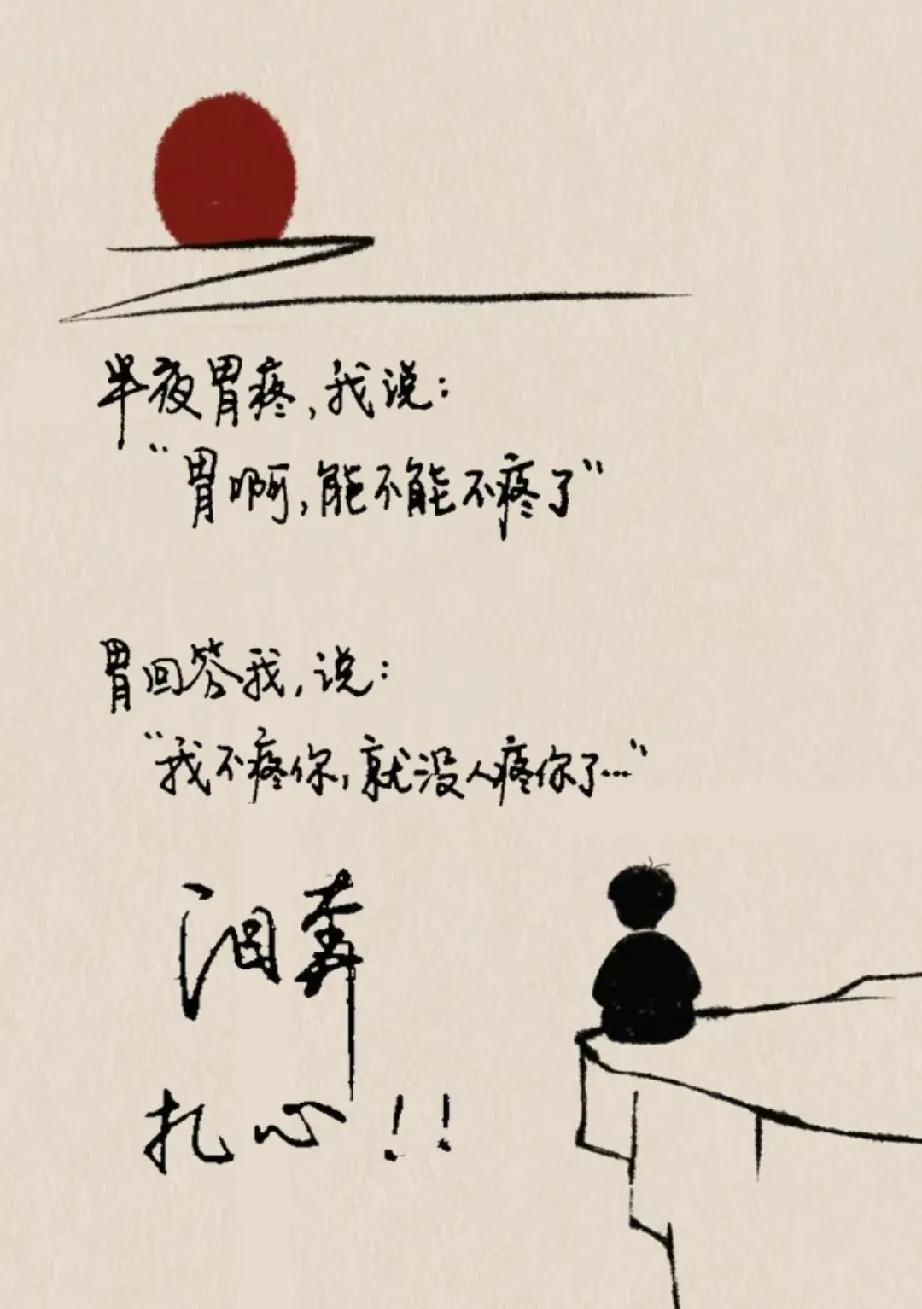 半夜胃疼,我说:
“胃啊,能不能不疼了”
胃回答我,说:
“我不疼你,就没人疼你了…”
泪奔
扎心!!